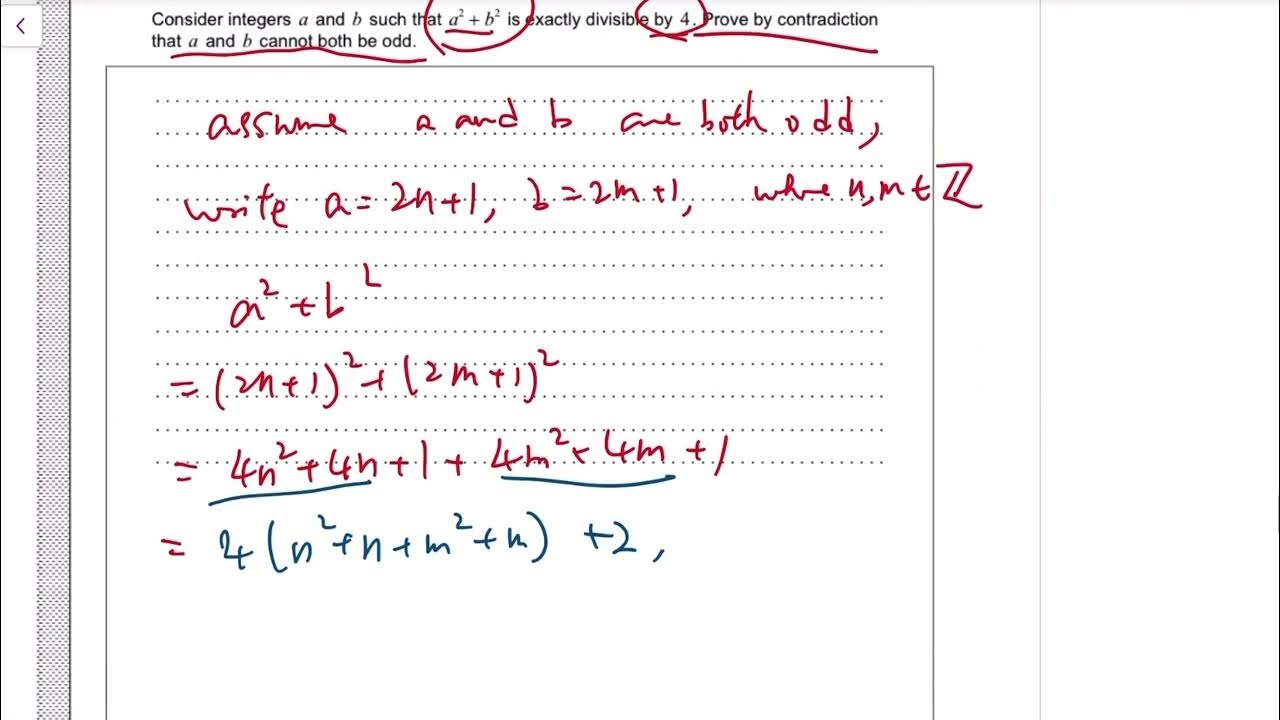 Consider integers a and b such that a² + b² is exactly divisible by 4. Prove by contradiction
that a and b cannot both be odd.
assume a and b are both odd,
write a = 2n+1, b = 2m+1, where n, m ∈ ℤ
a² + b²
= (2n+1)² + (2m+1)²
= 4n² + 4n + 1 + 4m² + 4m + 1
= 4(n² + n + m² + m) + 2,